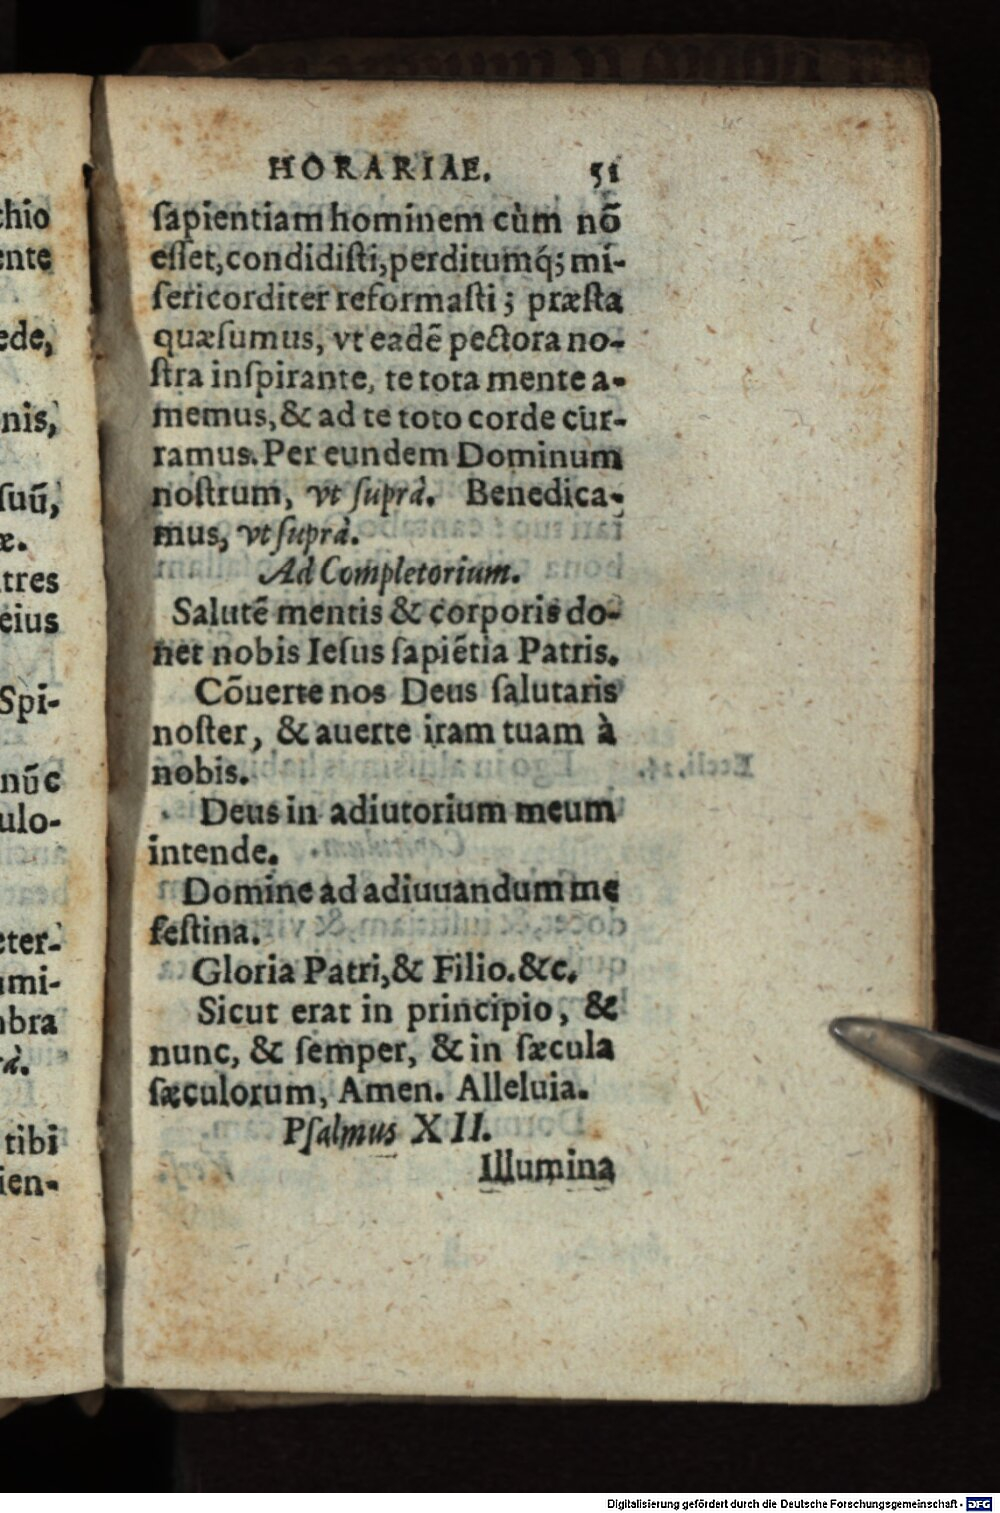 HORARIAE. 51
ſapientiam hominem cùm nõ
eſſet, condidiſti, perditumq́; mi-
ſericorditer reformaſti; præſta
quæſumus, vt eadẽ pectora no-
ſtra inſpirante, te tota mente a-
memus, & ad te toto corde cur-
ramus. Per eundem Dominum
noſtrum, vt ſuprà. Benedica-
mus, vt ſuprà.
Ad Completorium.
Salutẽ mentis & corporis do-
net nobis Ieſus ſapiẽtia Patris.
Cõuerte nos Deus ſalutaris
noſter, & auerte iram tuam à
nobis.
Deus in adiutorium meum
intende.
Domine ad adiuuandum me
feſtina.
Gloria Patri, & Filio. &c.
Sicut erat in principio, &
nunc, & ſemper, & in ſæcula
ſæculorum, Amen. Alleluia.
Pſalmus XII.
Illumina
chio
ente
ede,
nis,
ſuũ,
æ.
tres
eius
Spi-
nũc
ulo-
eter-
umi-
mbra
rà.
tibi
ien-
Digitalisierung gefördert durch die Deutsche Forschungsgemeinschaft - DFG